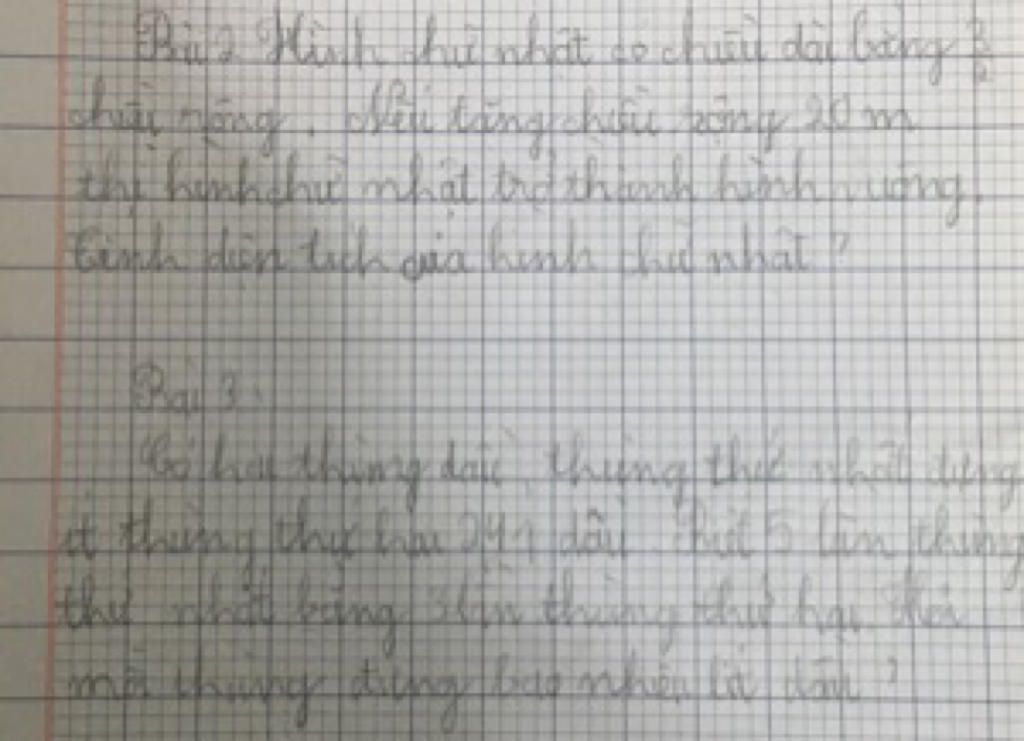 Bài 2 Hình chữ nhật có chiều dài bằng 3/2
chiều rộng. Nếu tăng chiều rộng 20 m
thì hình chữ nhật trở thành hình vuông.
Tính diện tích của hình chữ nhật?
Bài 3:
Có hai thùng dầu, thùng thứ nhất đựng
ít thùng thứ hai 24 l dầu. Biết 5 lần thùng
thứ nhất bằng 3 lần thùng thứ hai. Hỏi
mỗi thùng đựng bao nhiêu lít dầu?